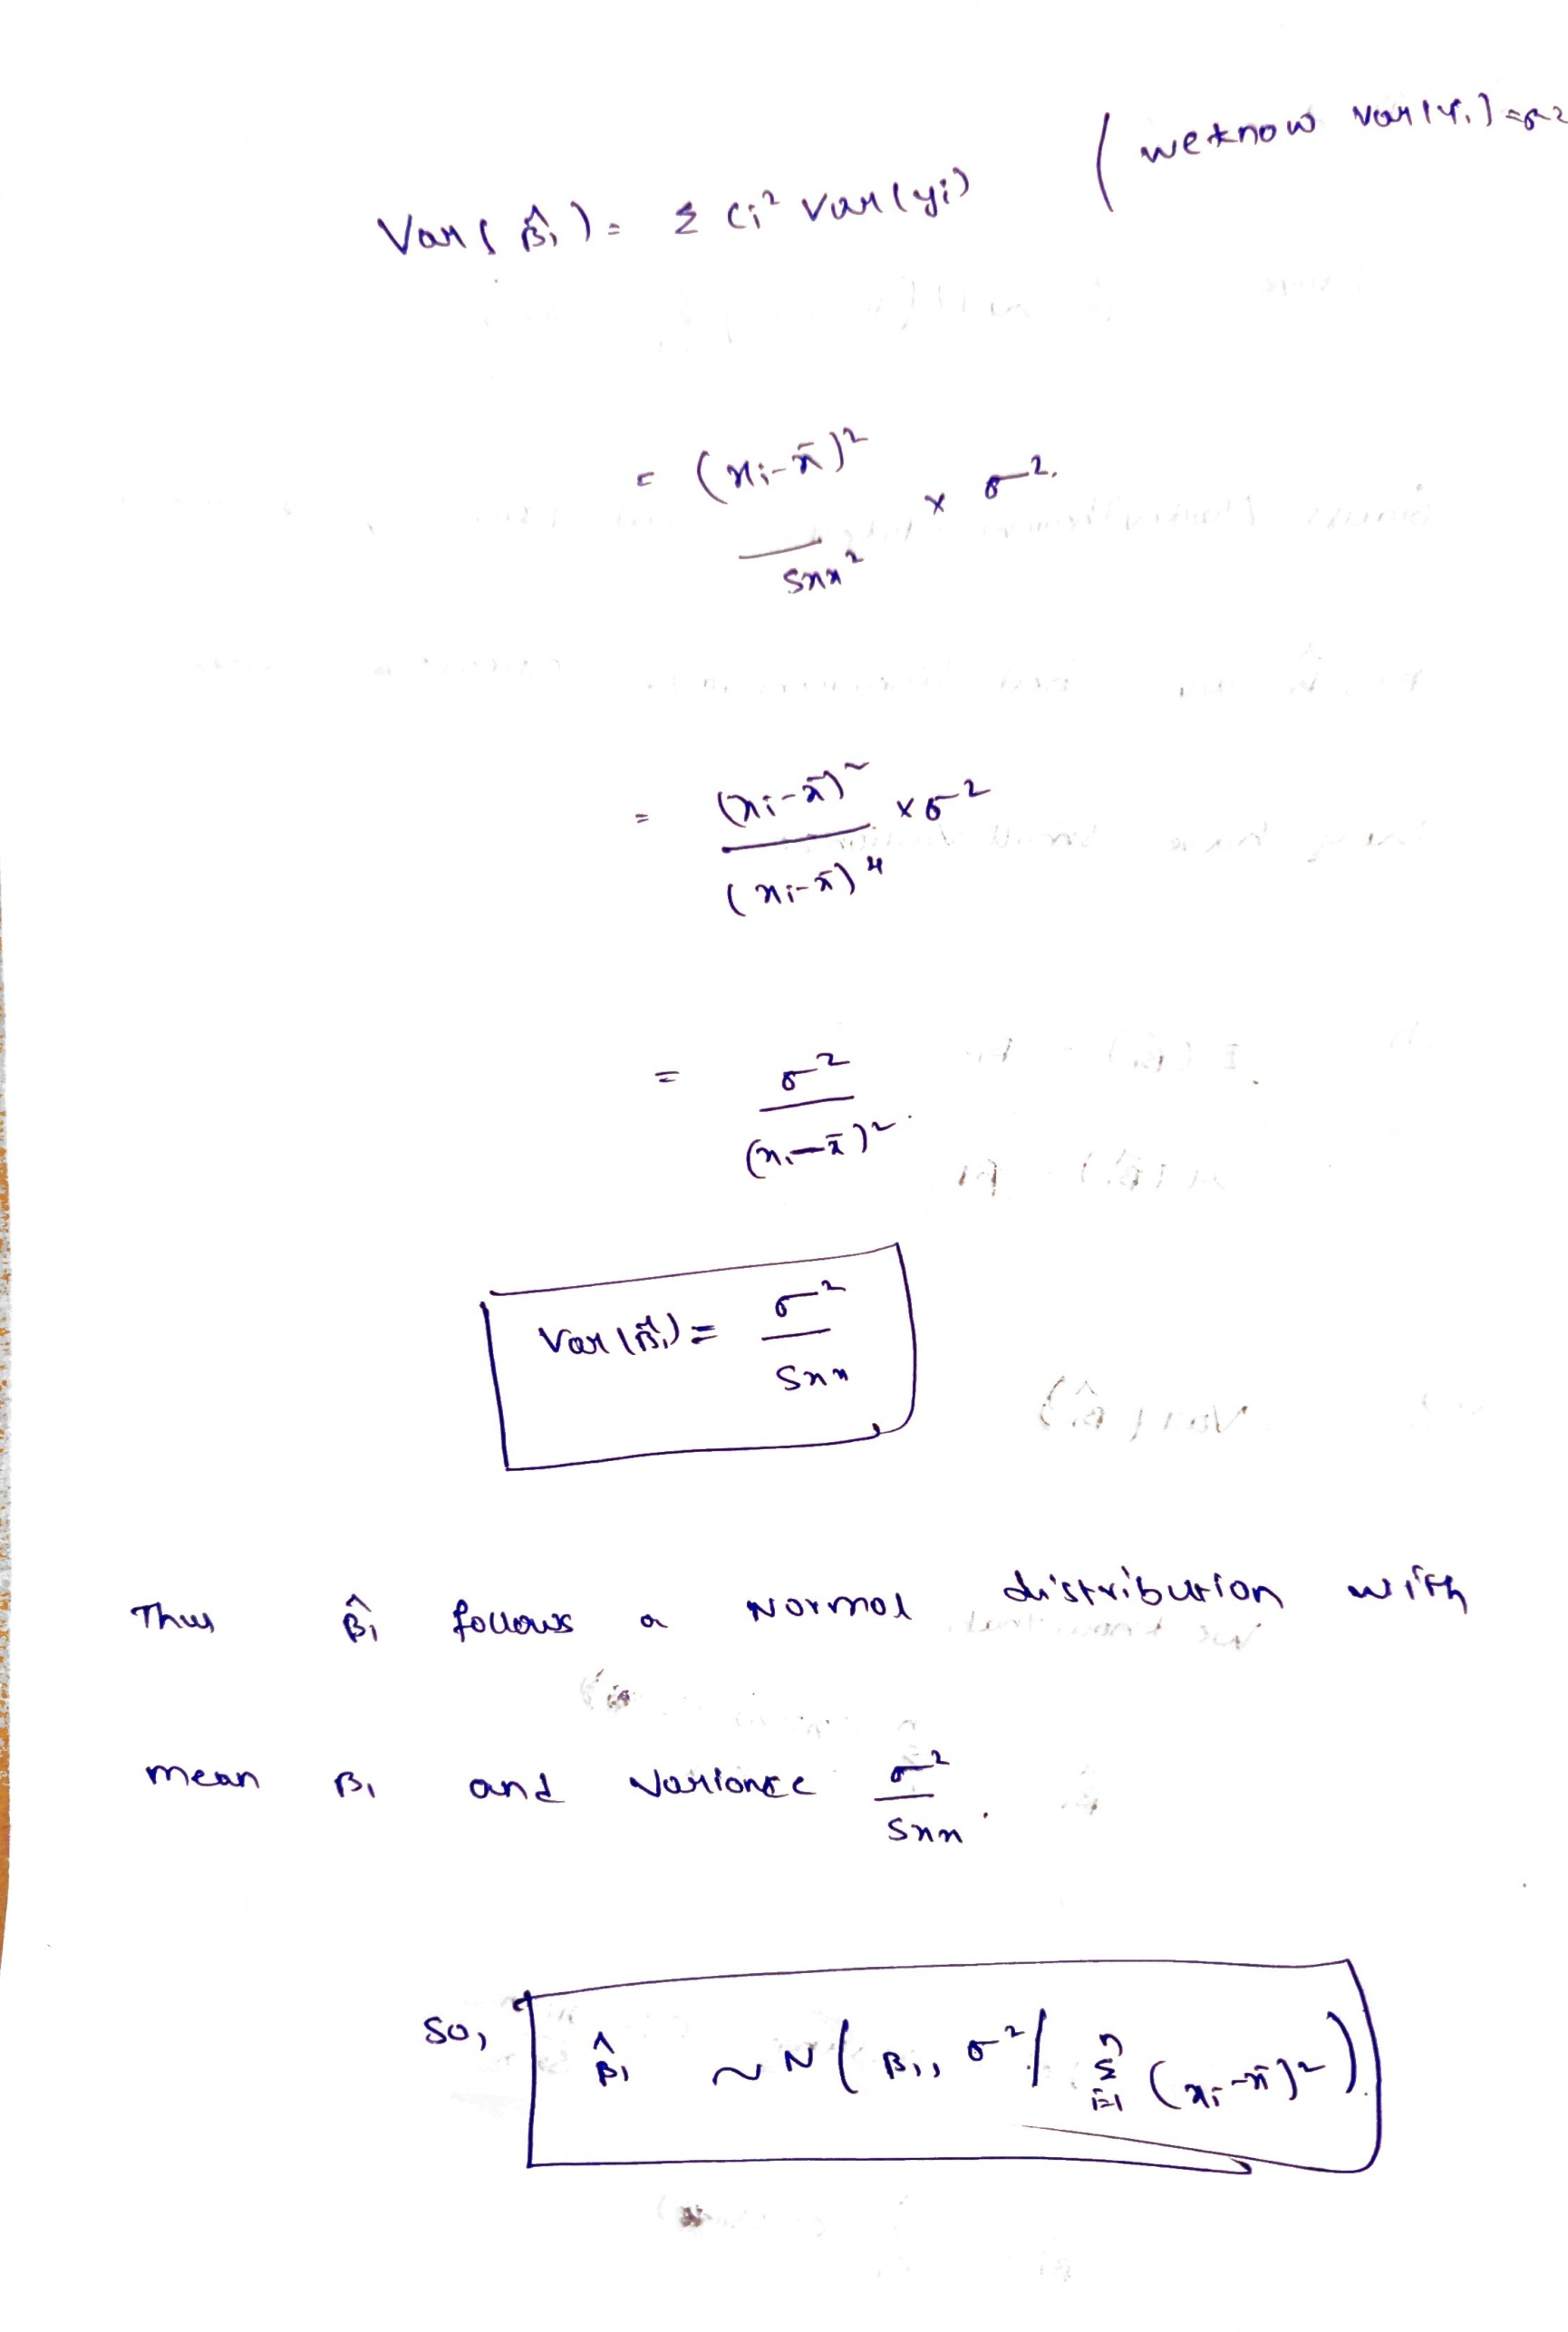 ( we know Var(y_i) = σ²
Var(β̂₁) = Σ Ci² Var(yi)
= (xi - x̄)² / Sxx² × σ².
= (xi - x̄)² / (xi - x̄)⁴ × σ²
= σ² / (xi - x̄)².
Var(β̂₁) = σ² / Sxx
Thus β̂₁ follows a Normal distribution with
mean β₁ and variance σ² / Sxx.
So, β̂₁ ~ N(β₁, σ² / Σ_{i=1}^{n} (xi - x̄)²)